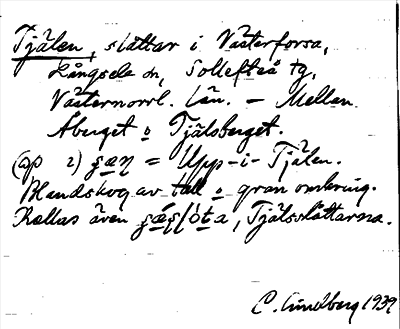 Tjälen, slåttar i Västerforsa,
Långsele sn, Sollefteå tg,
Västernorrl. län. – Mellan
Åberget o Tjälsberget.
(op 2) ʂæɳ = Upp-i-Tjälen.
Blandskog av tall o gran omkring.
Kallas även
, Tjälsslåttarna.
C. Lindberg 1939